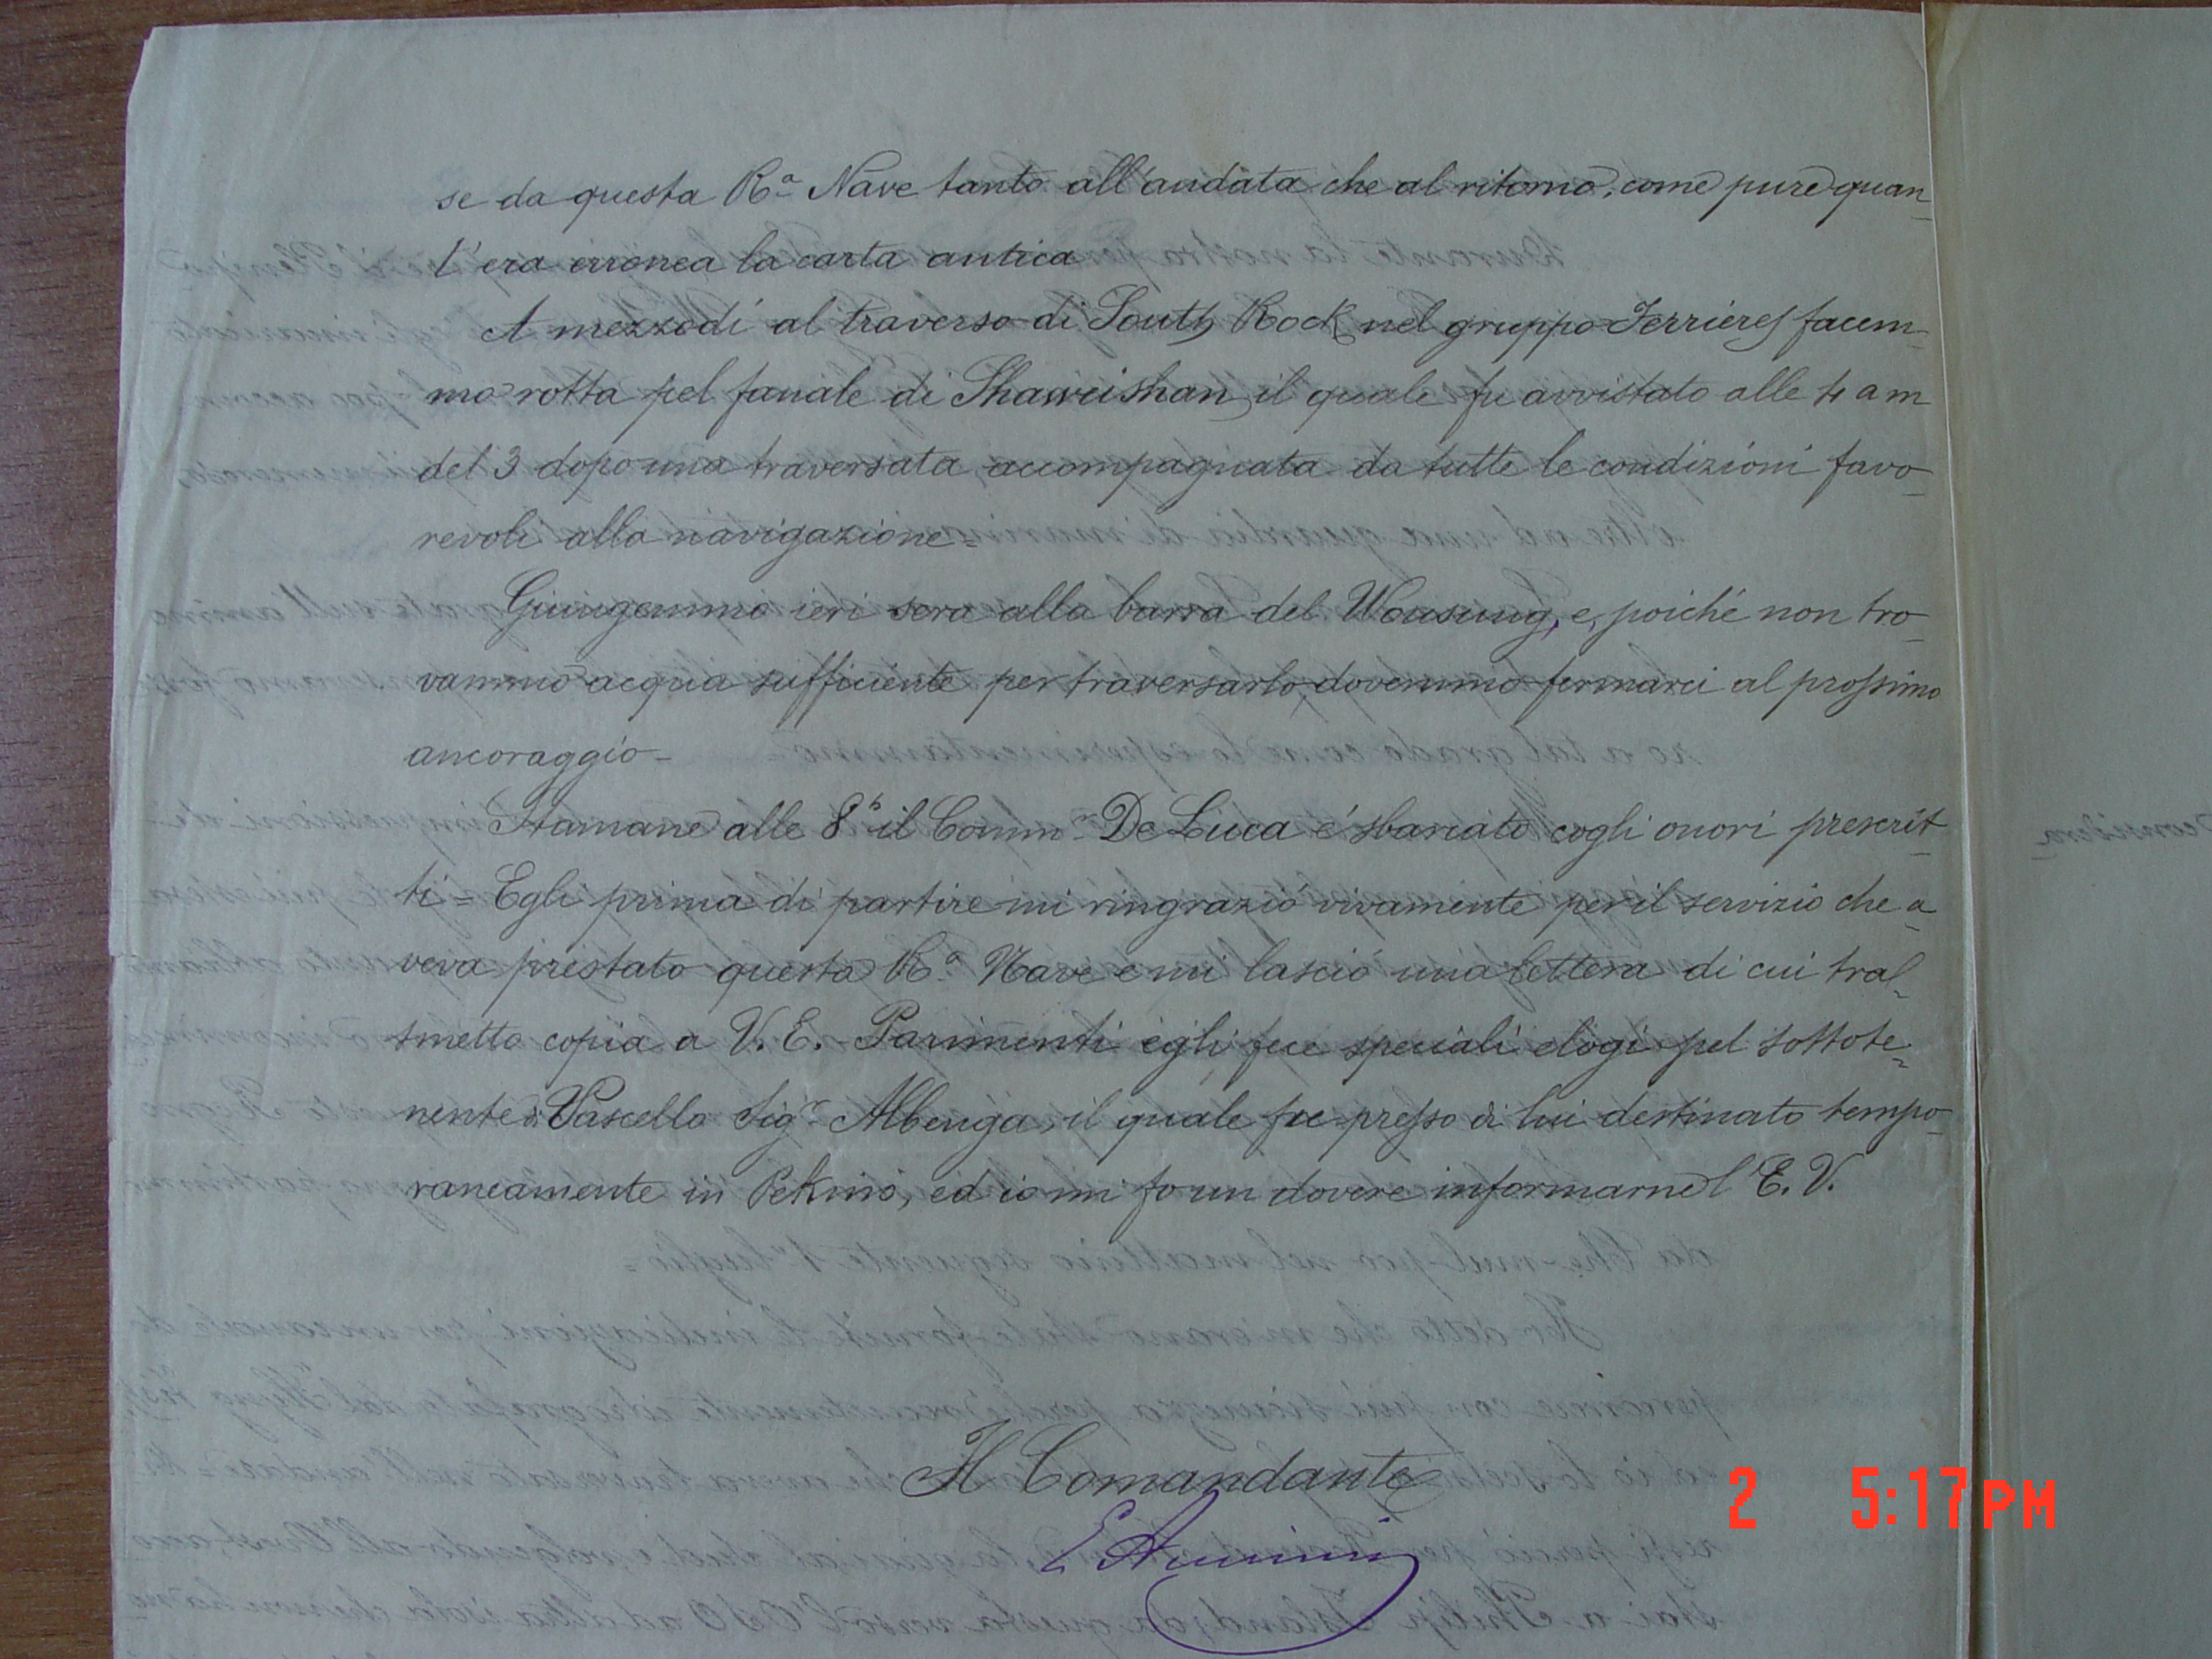 se da questa R.a Nave tanto all'andata che al ritorno, come pure quan-
t'era erronea la carta antica
A mezzodí al traverso di South Rock nel gruppo Ferriéres facem-
mo rotta pel fanale di Shaweishan il quale fu avvistato alle 4 am
del 3 dopo una traversata accompagnata da tutte le condizioni favo-
revoli alla navigazione=
Giungemmo ieri sera alla barra del Wousung, e, poiché non tro-
vammo acqua sufficiente per traversarlo, dovemmo fermarci al prossimo
ancoraggio-
Stamane alle 8h il Comm.r De Luca é sbarcato cogli onori prescrit-
ti= Egli prima di partire mi ringrazió vivamente per il servizio che a-
veva prestato questa R.a Nave e mi lasció una lettera di cui tras-
smetto copia a V. E. - Parimenti egli fece speciali elogi pel sottote=
nente di Vascello Sig.r Albenga, il quale fu presso di lui destinato tempo-
raneamente in Pekino, ed io mi fo un dovere informarne l'E. V.
Il Comandante
2 5:17 PM